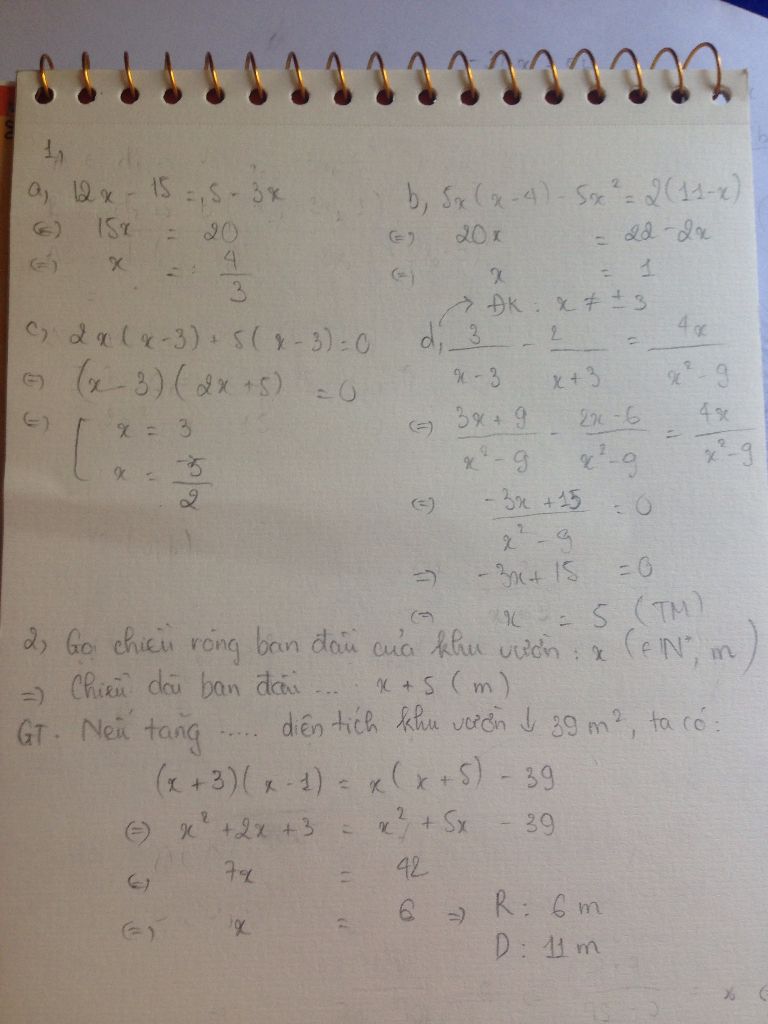 1,
a, 12x - 15 = 5 - 3x
(=) 15x = 20
(=) x = 4/3
b, 5x(x-4) - 5x² = 2(11-x)
(=) 20x = 22 - 2x
(=) x = 1
c, 2x(x-3) + 5(x-3) = 0
(=) (x-3)(2x+5) = 0
(=) [ x = 3
x = -5/2
→ ĐK : x ≠ ± 3
d, 3/(x-3) - 2/(x+3) = 4x/(x²-9)
(=) (3x+9)/(x²-9) - (2x-6)/(x²-9) = 4x/(x²-9)
(=) (-3x+15)/(x²-9) = 0
=) -3x+15 = 0
(=) x = 5 (TM)
2, Gọi chiều rộng ban đầu của khu vườn : x (∈ N*, m)
=) Chiều dài ban đầu ... x + 5 (m)
GT. Nếu tăng ..... diện tích khu vườn ↓ 39 m², ta có:
(x+3)(x-1) = x(x+5) - 39
(=) x² + 2x + 3 = x² + 5x - 39
(=) 7x = 42
(=) x = 6 =) R : 6 m
D : 11 m